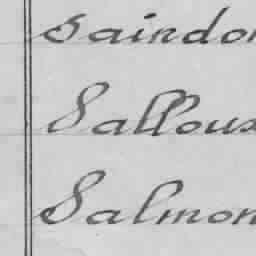 Saindon
Salloux
Salmon